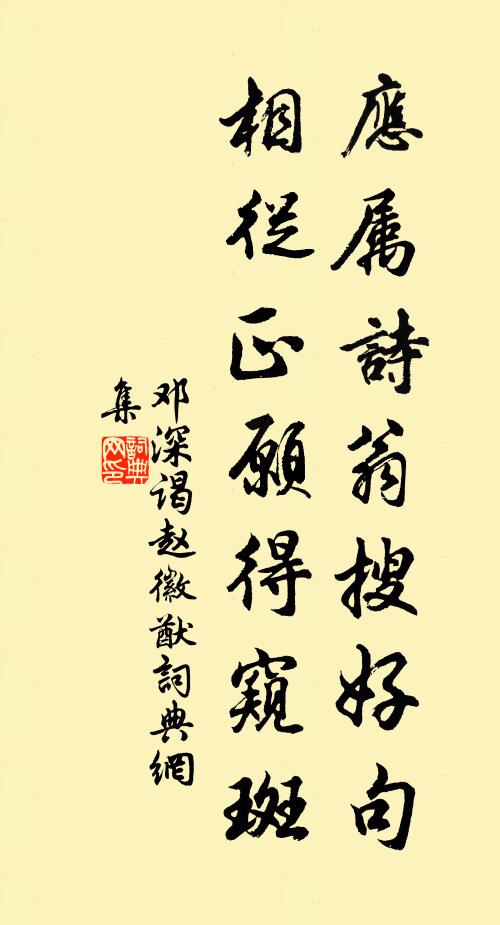 應属詩翁搜好句
相從正願得窺斑
邓深谒赵徽猷詞典網
集
詞典网印